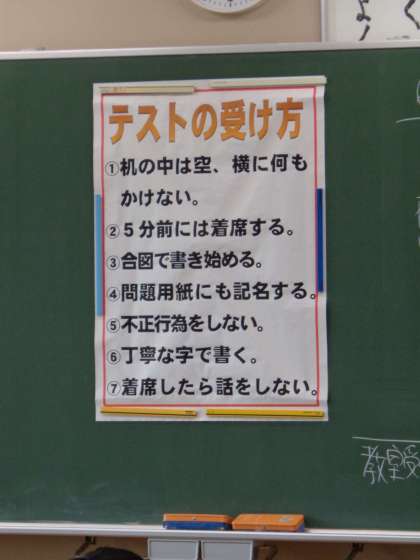 テストの受け方
①机の中は空、横に何も
かけない。
②5分前には着席する。
③合図で書き始める。
④問題用紙にも記名する。
⑤不正行為をしない。
⑥丁寧な字で書く。
⑦着席したら話をしない。
教室受